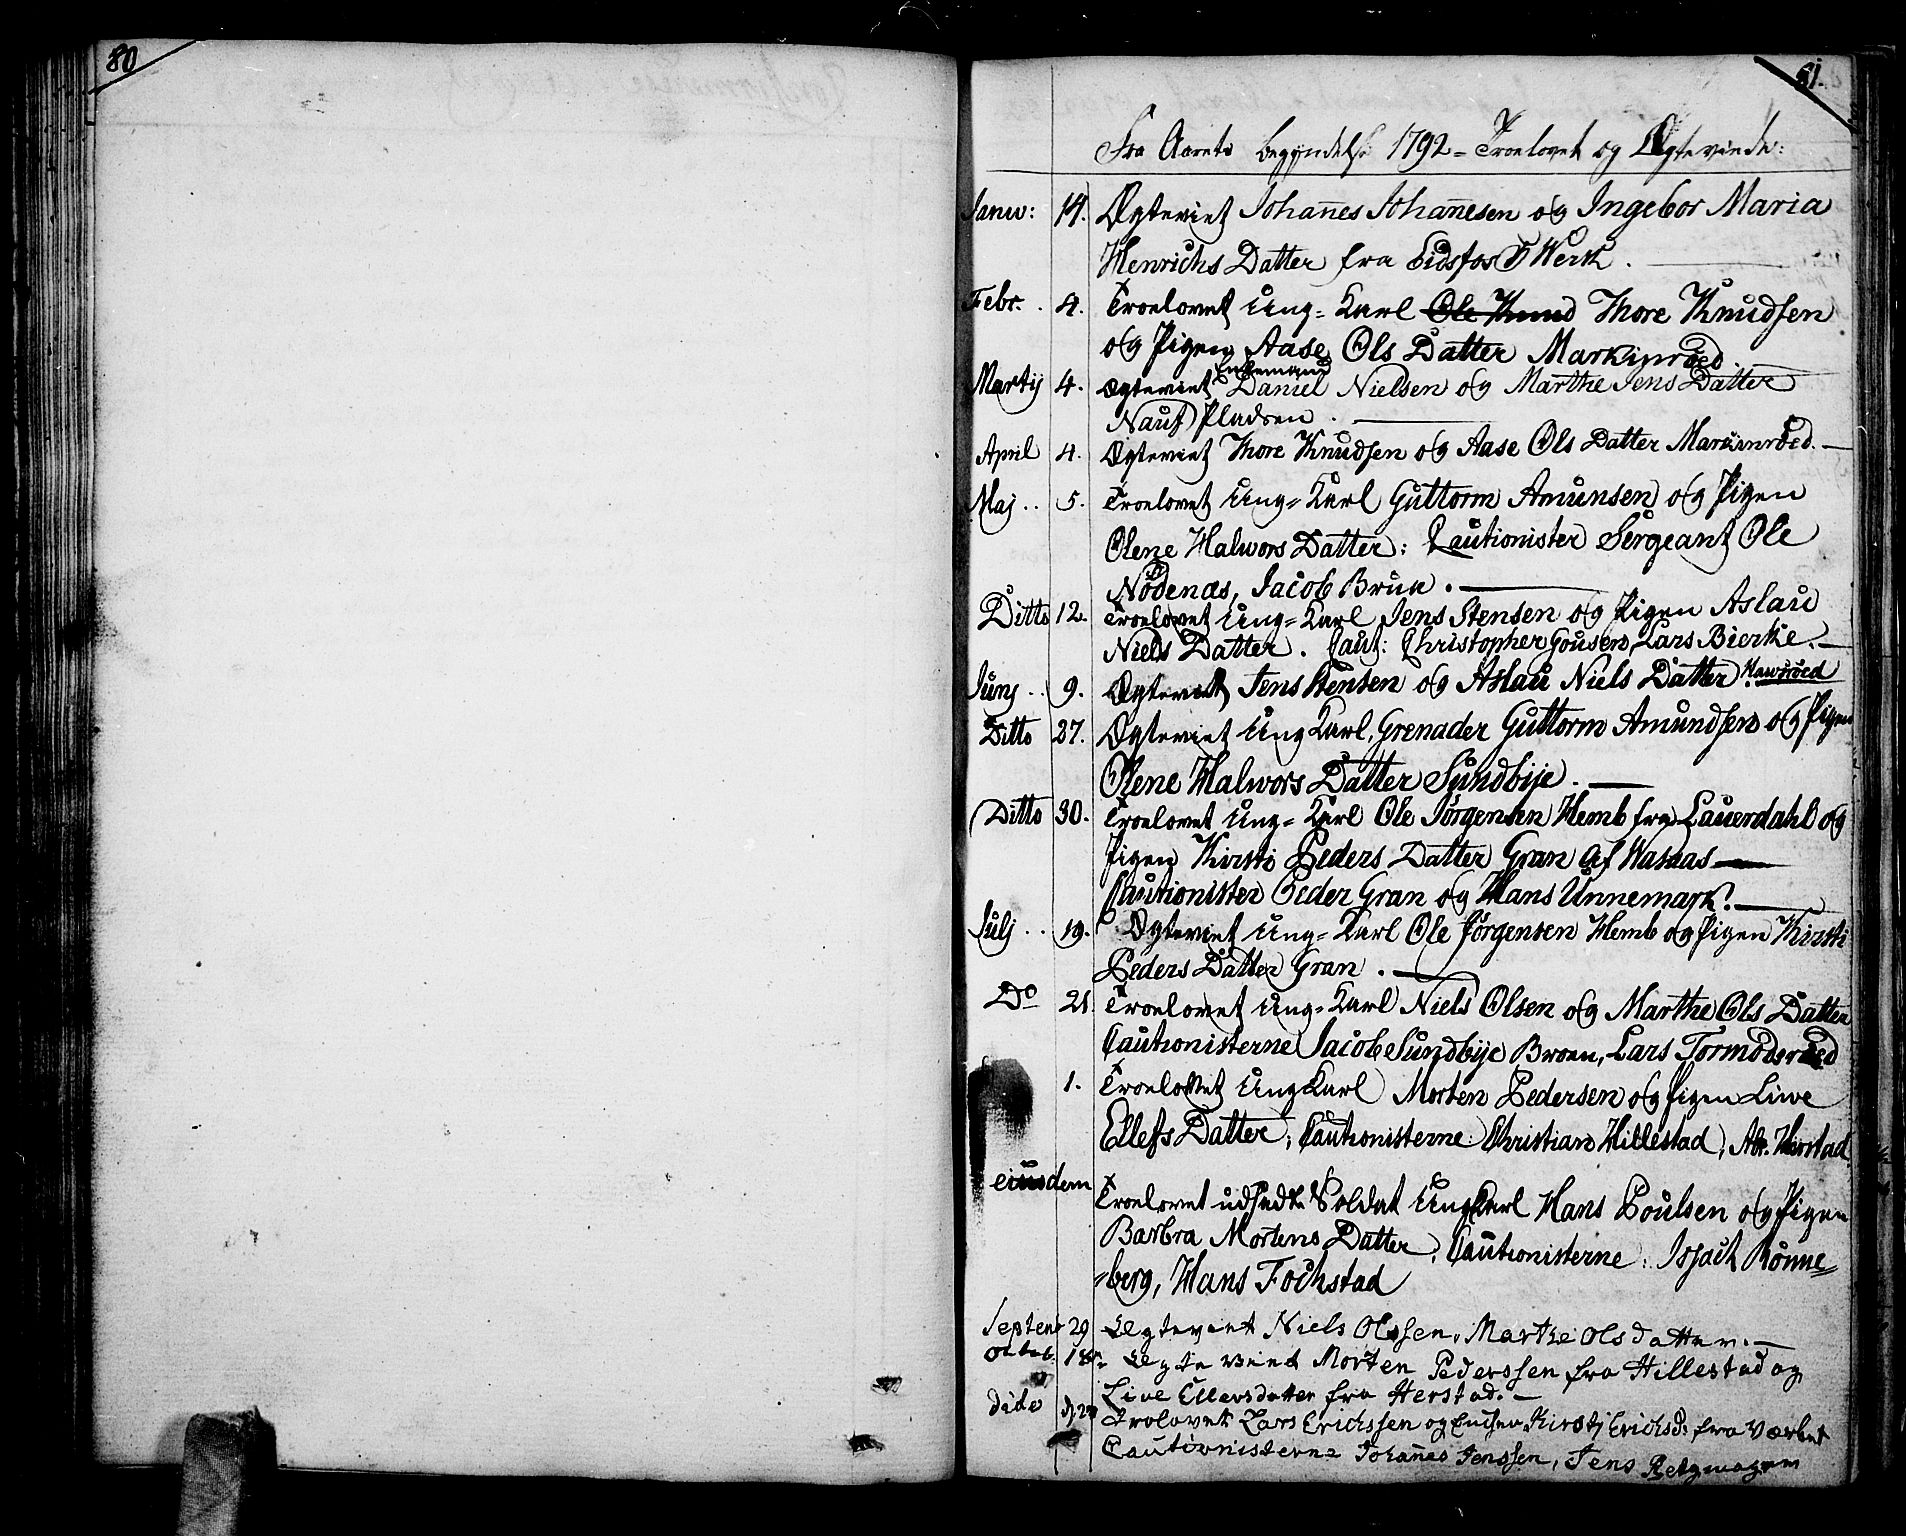 80
81.
Fra Aarets begyndelse 1792 = Troelovet og Ægteviede:
Janu: 14. Ægteviet Johan̄es Johan̄esen og Ingebor Maria
Henrichs Datter fra Eidsfos Werk.
Febr. . 4. Troelovet Ung=Karl Ole Knud Thore Knudsen
og Pigen Aase Ols Datter Markinröed
Martij 4. Ægteviet Enkemand Daniel Nielsen og Marthe Jens Datter
Nauf Pladsen.
April 4. Ægteviet Thore Knudsen og Aase Ols Datter Markinröed.
Maj . . 5. Troelovet Ung=Karl Guttorm Amunsen og Pigen
Olene Halwors Datter: Cautionister Sergeant Ole
Nödenæs, Jacob Brun.
Ditto 12. Troelovet Ung=Karl Jens Stensen og Pigen Aslau
Niels Datter. Caut: Christopher Gousen, Lars Bierke.
Junj . . 9. Ægteviet Jens Stensen og Aslau Niels Datter
Ditto 27. Ægteviet Ung Karl, Grenader Guttorm Amundsen og Pigen
Olene Halwors Datter Sundbye.
Ditto 30. Troelovet Ung=Karl Ole Jörgensen Hemb fra Lauerdahl og
Pigen Kirsti Peders Datter Gran af Wasaas
Cautionister Peder Gran og Hans Unnemark.
Julj . . 19. Ægteviet Ung=Karl Ole Jörgensen Hemb og Pigen Kirsti
Peders Datter Gran.
Do 21. Troelovet Ung=Karl Niels Olsen og Marthe Ols Datter
Cautionisterne Jacob Sundbye Broen, Lars Tormodsröed
1. Troelovet Ung Karl Morten Pedersen og Pigen Liwe
Ellefs Datter; Cautionisterne: Christian Hillestad, Abr. Herstad.
eiusdem Troelovet udsedte Soldat Ung Karl Hans Poulsen og Pigen
Barbra Mortens Datter, Cautionisterne: Issach Rönne=
=berg, Hans Fochstad
Septem 29 Ægteviet Niels Olssen, Marthe Olsdatter.
Octob. 18 Ægteviet Morten Pederssen fra Hillestad og
Live Ellevsdatter fra Herstad.
dido d 27 Trolovet Lars Erichssen og Enchen Kirstj Erichsd: fra Værket
Cautionisterne Johan̄es Jenssen, Jens